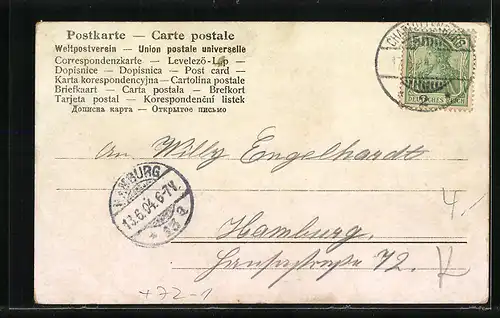 Postkarte — Carte postale
Weltpostverein — Union postale universelle
Correspondenzkarte — Levelező-Lap —
Dopisnice — Dopisnica — Post card —
Karta korespondencyjna — Cartolina postale
Briefkaart — Carta postala — Brefkort
Tarjeta postal — Korespondenční listek
Дописна карта — Открытое письмо
CHARLOTTENBURG
DEUTSCHES REICH
An Willy Engelhardt
HAMBURG
13.6.04. 6-7 V.
4.-
Hamburg.
Hansastraße 72.
K
+72-1